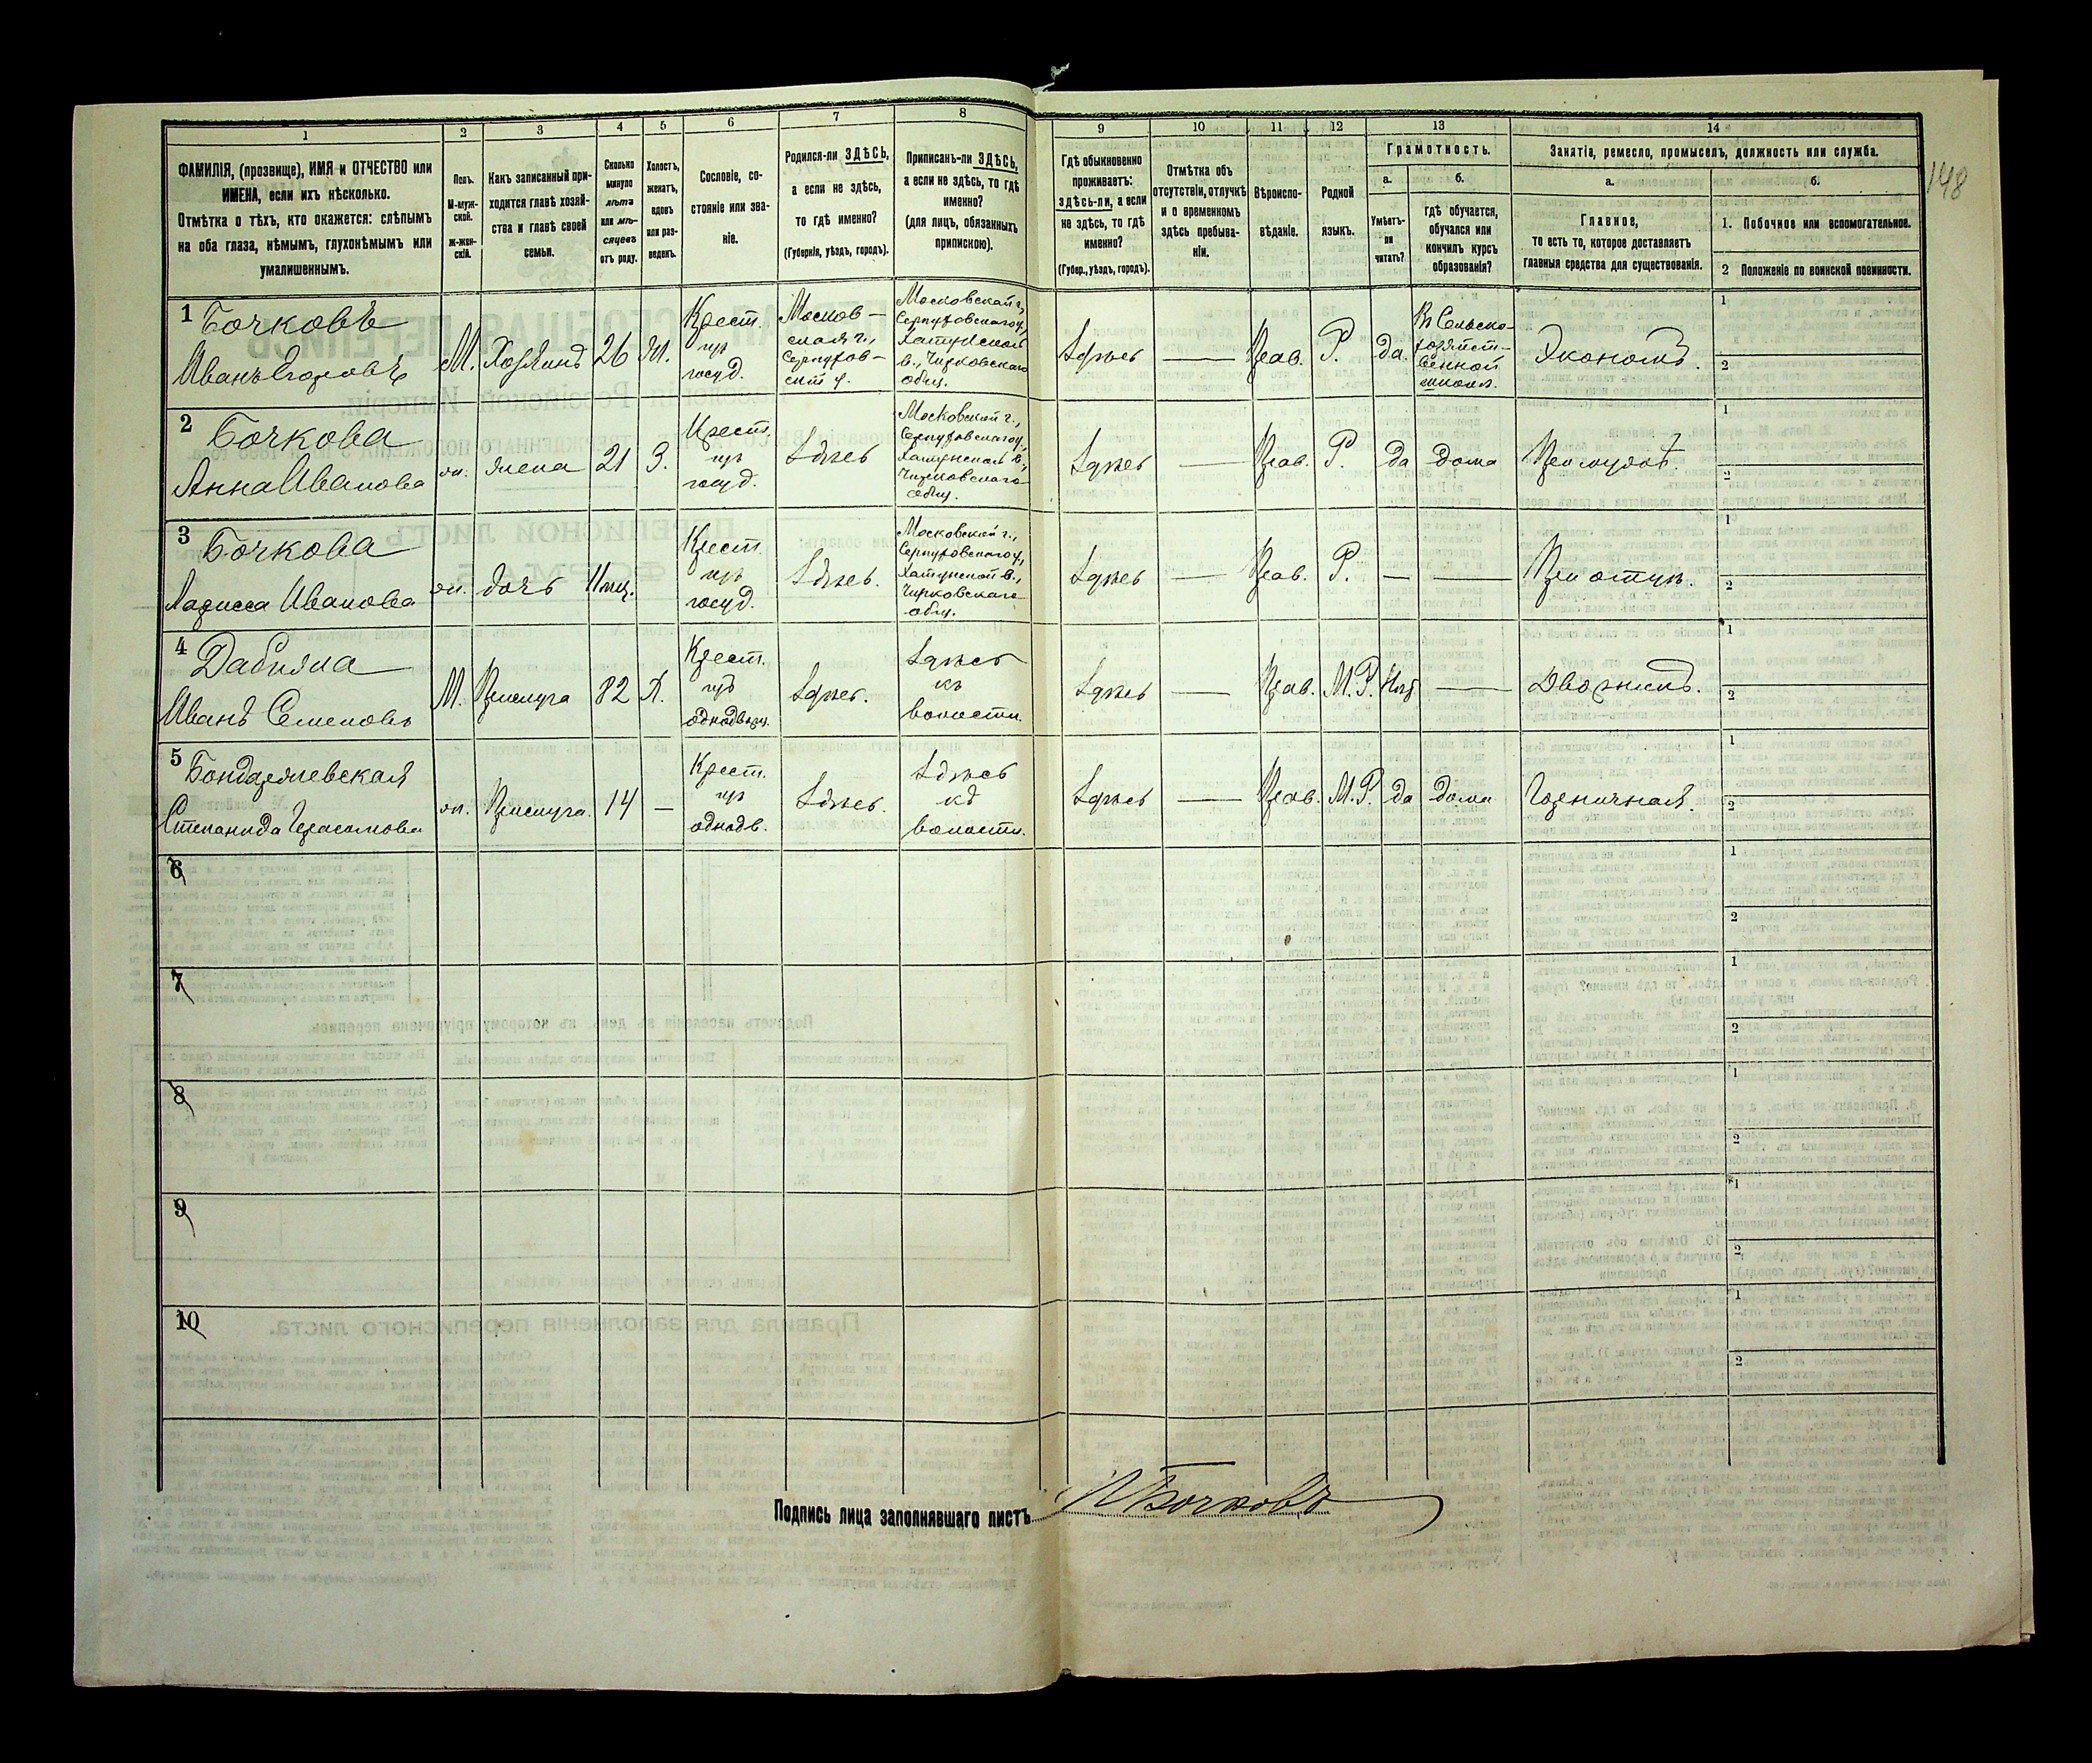 148
1 2 3 4 5 6 7 8 9 10 11 12 13 14
ФАМИЛІЯ, (прозвище), ИМЯ и ОТЧЕСТВО или
ИМЕНА, если ихъ нѣсколько.
Отмѣтка о тѣхъ, кто окажется: слѣпымъ
на оба глаза, нѣмымъ, глухонѣмымъ или
умалишеннымъ.
Полъ.
М-муж-
ской.
Ж-жен-
скій.
Какъ записанный при-
ходится главѣ хозяй-
ства и главѣ своей
семьи.
Сколько
минуло
лѣтъ
или мѣ-
сяцевъ
отъ роду.
Холостъ,
женатъ,
вдовъ
или раз-
веденъ.
Сословіе, со-
стояніе или зва-
ніе.
Родился-ли ЗДѢСЬ,
а если не здѣсь,
то гдѣ именно?
(Губернія, уѣздъ, городъ).
Приписанъ-ли ЗДѢСЬ,
а если не здѣсь, то гдѣ
именно?
(для лицъ, обязанныхъ
припискою).
Гдѣ обыкновенно
проживаетъ:
здѣсь-ли, а если
не здѣсь, то гдѣ
именно?
(Губер., уѣздъ, городъ).
Отмѣтка объ
отсутствіи, отлучкѣ
и о временномъ
здѣсь пребыва-
ніи.
Вѣроиспо-
вѣданіе.
Родной
языкъ.
Грамотность.
а.
Умѣетъ-
ли
читать?
б.
гдѣ обучается,
обучался или
кончилъ курсъ
образованія?
Занятія, ремесло, промыселъ, должность или служба.
а.
Главное,
то есть то, которое доставляетъ
главныя средства для существованія.
б.
1. Побочное или вспомогательное.
2 Положеніе по воинской повинности.
1 Бочковъ
Иванъ Егоровъ
М. Хозяинъ 26 Ж.
Крест.
изъ
госуд.
Москов-
ская г.,
Серпухов-
скій у.
Московской г.,
Серпуховскаго у.,
Хатунской
в., Чирковскаго
общ.
Здѣсь — Прав. Р. да.
Въ Сельско-
хозяйст-
венной
школѣ.
Экономъ.
1
2
2 Бочкова
Анна Иванова
ж. жена 21 З.
Крест.
изъ
госуд.
Здѣсь
Московской г.,
Серпуховскаго у.,
Хатунской в.,
Чирковскаго
общ.
Здѣсь — Прав. Р. да дома При мужѣ.
1
2
3 Бочкова
Лариса Иванова
ж. дочь 11 мц.
Крест.
изъ
госуд.
Здѣсь.
Московской г.,
Серпуховскаго у.,
Хатунской в.,
Чирковскаго
общ.
Здѣсь — Прав. Р. — — При отцѣ.
1
2
4 Дабижа
Иванъ Семеновъ
М. Прислуга 82 Х.
Крест.
изъ
однодворц.
Здѣсь.
Здѣсь
къ
волости.
Здѣсь — Прав. М.Р. Нѣтъ — Дворникъ.
1
2
5 Бондаржевская
Степанида Герасимова
ж. Прислуга. 14 —
Крест.
изъ
однодв.
Здѣсь.
Здѣсь
къ
волости.
Здѣсь — Прав. М.Р. да дома Горничная.
1
2
6
1
2
7
1
2
8
1
2
9
1
2
10
1
2
Подпись лица заполнявшаго листъ И Бочковъ